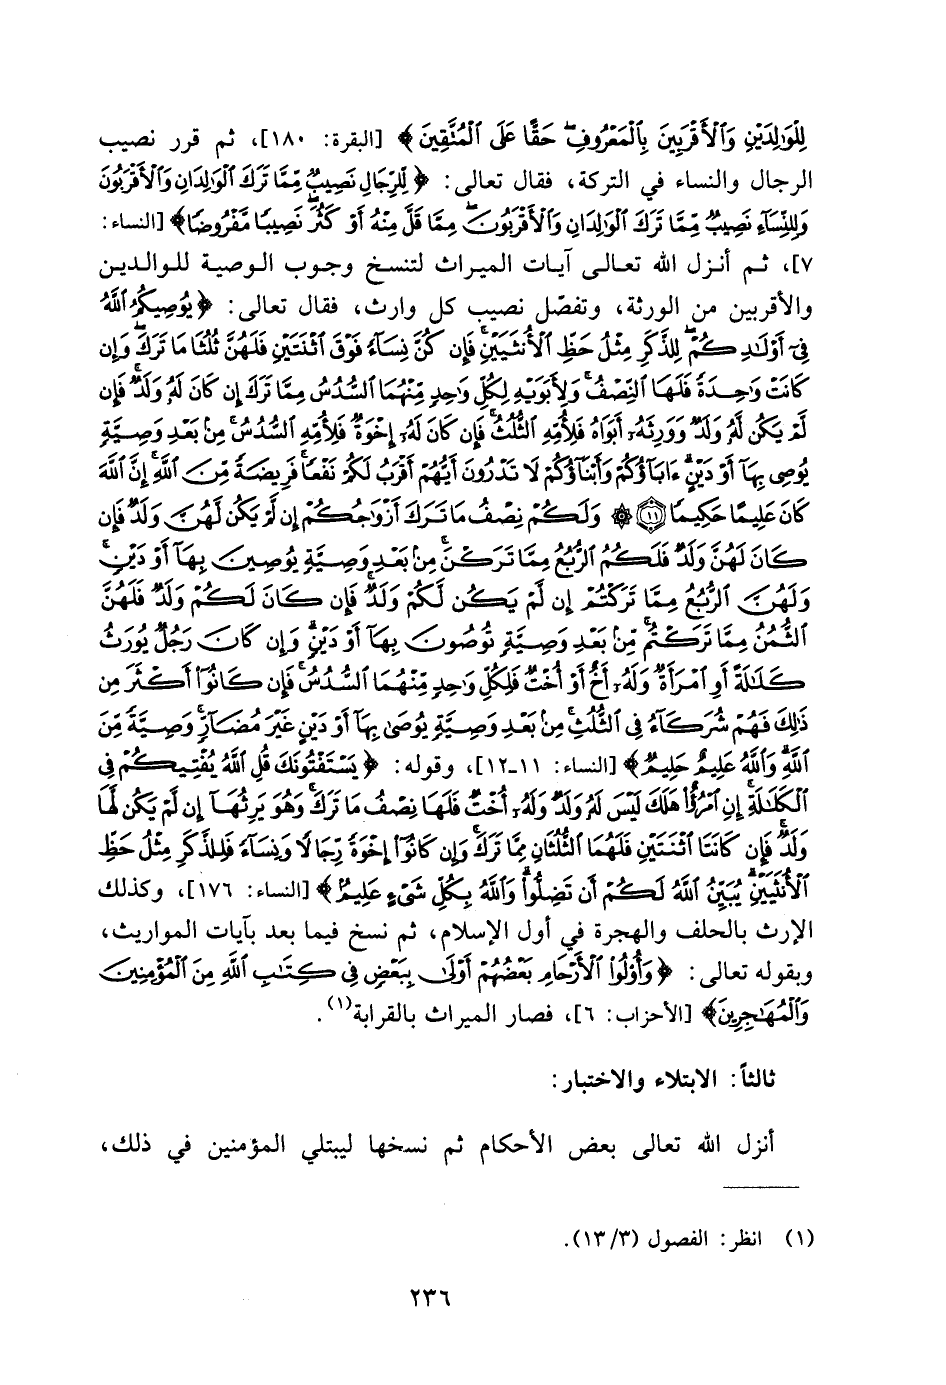 لِلْوَالِدَيْنِ وَالْأَقْرَبِينَ بِالْمَعْرُوفِ حَقًّا عَلَى الْمُتَّقِينَ ﴾ [البقرة: ١٨٠]، ثم قرر نصيب
الرجال والنساء في التركة، فقال تعالى: ﴿ لِّلرِّجَالِ نَصِيبٌ مِّمَّا تَرَكَ الْوَالِدَانِ وَالْأَقْرَبُونَ
وَلِلنِّسَاءِ نَصِيبٌ مِّمَّا تَرَكَ الْوَالِدَانِ وَالْأَقْرَبُونَ مِمَّا قَلَّ مِنْهُ أَوْ كَثُرَ نَصِيبًا مَّفْرُوضًا ﴾ [النساء:
٧]، ثم أنزل الله تعالى آيات الميراث لتنسخ وجوب الوصية للوالدين
والأقربين من الورثة، وتفصّل نصيب كل وارث، فقال تعالى: ﴿ يُوصِيكُمُ اللَّهُ
فِي أَوْلَادِكُمْ لِلذَّكَرِ مِثْلُ حَظِّ الْأُنثَيَيْنِ فَإِن كُنَّ نِسَاءً فَوْقَ اثْنَتَيْنِ فَلَهُنَّ ثُلُثَا مَا تَرَكَ وَإِن
كَانَتْ وَاحِدَةً فَلَهَا النِّصْفُ وَلِأَبَوَيْهِ لِكُلِّ وَاحِدٍ مِّنْهُمَا السُّدُسُ مِمَّا تَرَكَ إِن كَانَ لَهُ وَلَدٌ فَإِن
لَّمْ يَكُن لَّهُ وَلَدٌ وَوَرِثَهُ أَبَوَاهُ فَلِأُمِّهِ الثُّلُثُ فَإِن كَانَ لَهُ إِخْوَةٌ فَلِأُمِّهِ السُّدُسُ مِن بَعْدِ وَصِيَّةٍ
يُوصِي بِهَا أَوْ دَيْنٍ ءَابَاؤُكُمْ وَأَبْنَاؤُكُمْ لَا تَدْرُونَ أَيُّهُمْ أَقْرَبُ لَكُمْ نَفْعًا فَرِيضَةً مِّنَ اللَّهِ إِنَّ اللَّهَ
كَانَ عَلِيمًا حَكِيمًا ⑪ ۞ وَلَكُمْ نِصْفُ مَا تَرَكَ أَزْوَاجُكُمْ إِن لَّمْ يَكُن لَّهُنَّ وَلَدٌ فَإِن
كَانَ لَهُنَّ وَلَدٌ فَلَكُمُ الرُّبُعُ مِمَّا تَرَكْنَ مِن بَعْدِ وَصِيَّةٍ يُوصِينَ بِهَا أَوْ دَيْنٍ
وَلَهُنَّ الرُّبُعُ مِمَّا تَرَكْتُمْ إِن لَّمْ يَكُن لَّكُمْ وَلَدٌ فَإِن كَانَ لَكُمْ وَلَدٌ فَلَهُنَّ
الثُّمُنُ مِمَّا تَرَكْتُم مِّن بَعْدِ وَصِيَّةٍ تُوصُونَ بِهَا أَوْ دَيْنٍ وَإِن كَانَ رَجُلٌ يُورَثُ
كَلَالَةً أَوِ امْرَأَةٌ وَلَهُ أَخٌ أَوْ أُخْتٌ فَلِكُلِّ وَاحِدٍ مِّنْهُمَا السُّدُسُ فَإِن كَانُوا أَكْثَرَ مِن
ذَلِكَ فَهُمْ شُرَكَاءُ فِي الثُّلُثِ مِن بَعْدِ وَصِيَّةٍ يُوصَى بِهَا أَوْ دَيْنٍ غَيْرَ مُضَارٍّ وَصِيَّةً مِّنَ
اللَّهِ وَاللَّهُ عَلِيمٌ حَلِيمٌ ﴾ [النساء: ١١-١٢]، وقوله: ﴿ يَسْتَفْتُونَكَ قُلِ اللَّهُ يُفْتِيكُمْ فِي
الْكَلَالَةِ إِنِ امْرُؤٌا هَلَكَ لَيْسَ لَهُ وَلَدٌ وَلَهُ أُخْتٌ فَلَهَا نِصْفُ مَا تَرَكَ وَهُوَ يَرِثُهَا إِن لَّمْ يَكُن لَّهَا
وَلَدٌ فَإِن كَانَتَا اثْنَتَيْنِ فَلَهُمَا الثُّلُثَانِ مِمَّا تَرَكَ وَإِن كَانُوا إِخْوَةً رِّجَالًا وَنِسَاءً فَلِلذَّكَرِ مِثْلُ حَظِّ
الْأُنثَيَيْنِ يُبَيِّنُ اللَّهُ لَكُمْ أَن تَضِلُّوا وَاللَّهُ بِكُلِّ شَيْءٍ عَلِيمٌ ﴾ [النساء: ١٧٦]، وكذلك
الإرث بالحلف والهجرة في أول الإسلام، ثم نسخ فيما بعد بآيات المواريث،
وبقوله تعالى: ﴿ وَأُوْلُوا الْأَرْحَامِ بَعْضُهُمْ أَوْلَى بِبَعْضٍ فِي كِتَابِ اللَّهِ مِنَ الْمُؤْمِنِينَ
وَالْمُهَاجِرِينَ ﴾ [الأحزاب: ٦]، فصار الميراث بالقرابة(١).
ثالثاً: الابتلاء والاختبار:
أنزل الله تعالى بعض الأحكام ثم نسخها ليبتلي المؤمنين في ذلك،
(١) انظر: الفصول (٣/ ١٣).
٢٣٦